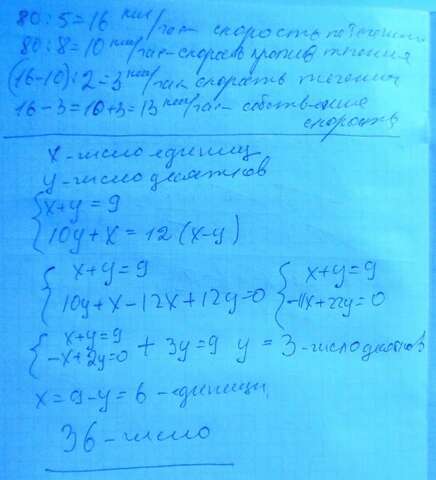 80 : 5 = 16 км/час - скорость по течению
80 : 8 = 10 км/час - скорость против течения
(16-10) : 2 = 3 км/час скорость течения
16 - 3 = 10 + 3 = 13 км/час - собственная
скорость
x - число единиц
y - число десятков
x + y = 9
10y + x = 12 (x - y)
x + y = 9 x + y = 9
10y + x - 12x + 12y = 0 -11x + 22y = 0
x + y = 9
-x + 2y = 0 + 3y = 9 y = 3 - число десятков
x = 9 - y = 6 - единицы
36 - число